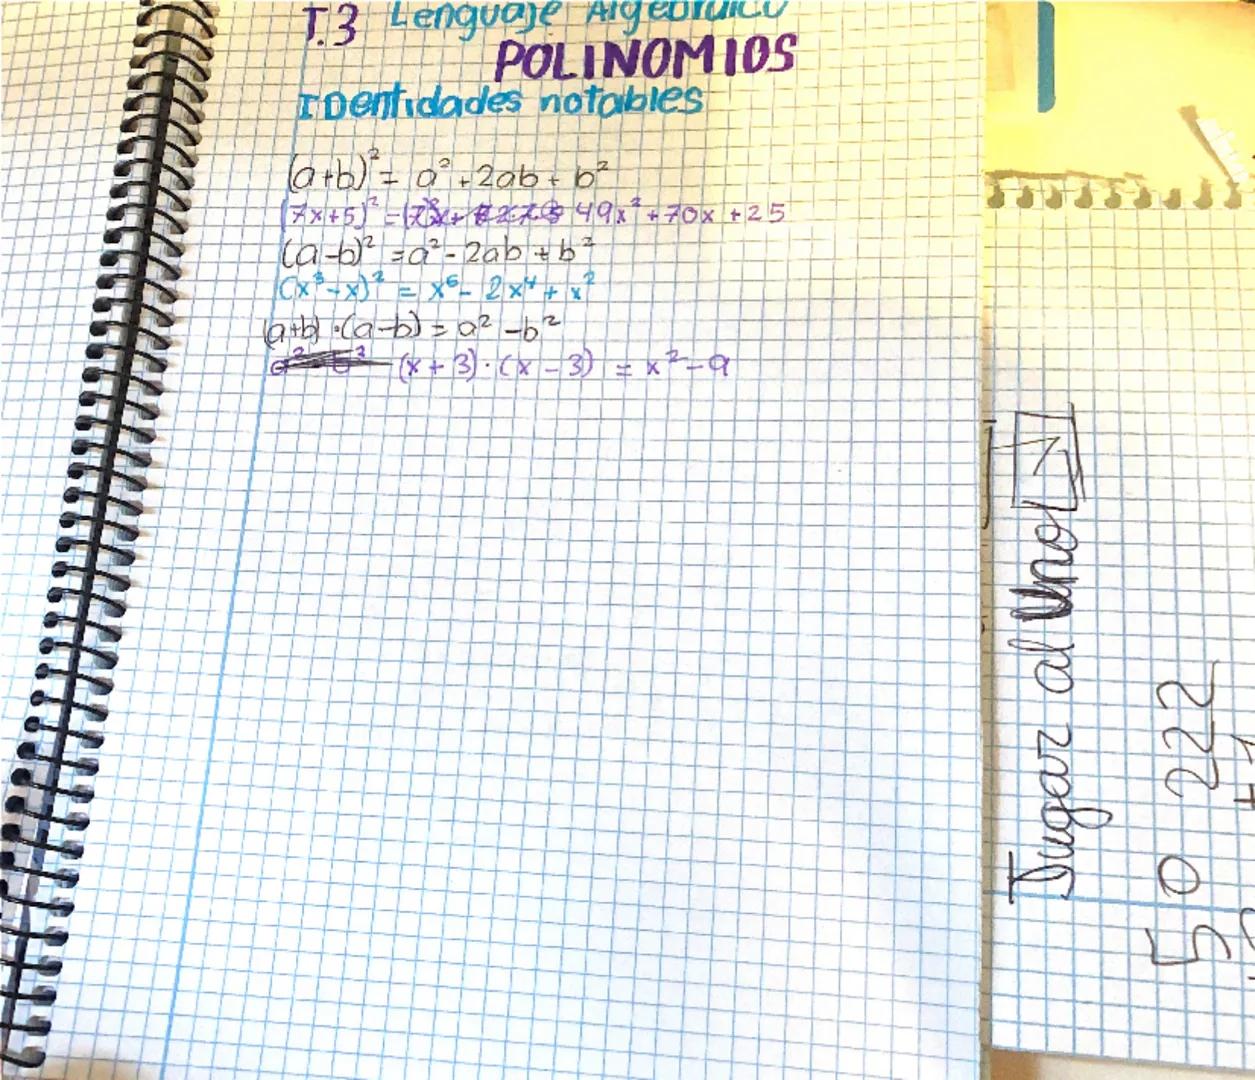 T.3 Lenguaje Algebraico
POLINOMIOS
IDentidades notables
(a+b)² = a² + 2ab + b²
(7x+5)² = 49x² + 70x + 25
(a-b)² = a² - 2ab + b²
(x³-x)² = x⁶ - 2x⁴ + x²
(a+b)·(a-b) = a² - b²
(x+3)·(x-3) = x² - 9
Jugar al Uno
50 222